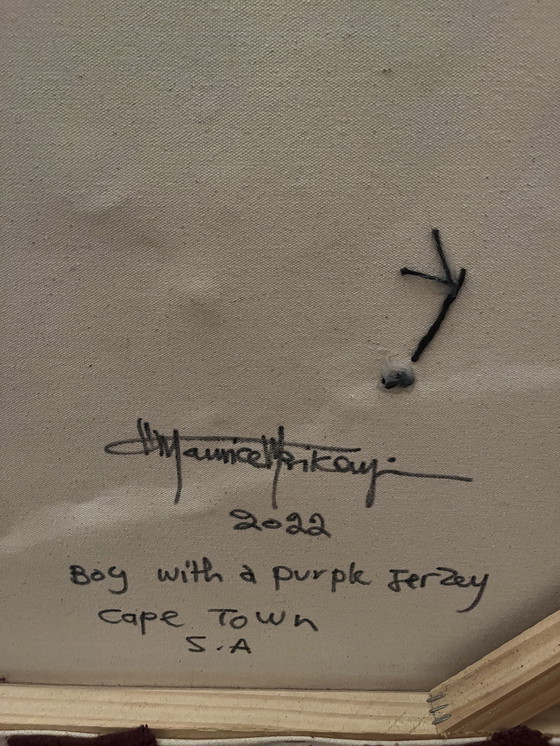 Maurice Mbikayi
2022
Boy with a purple Jerzey
Cape Town
S.A